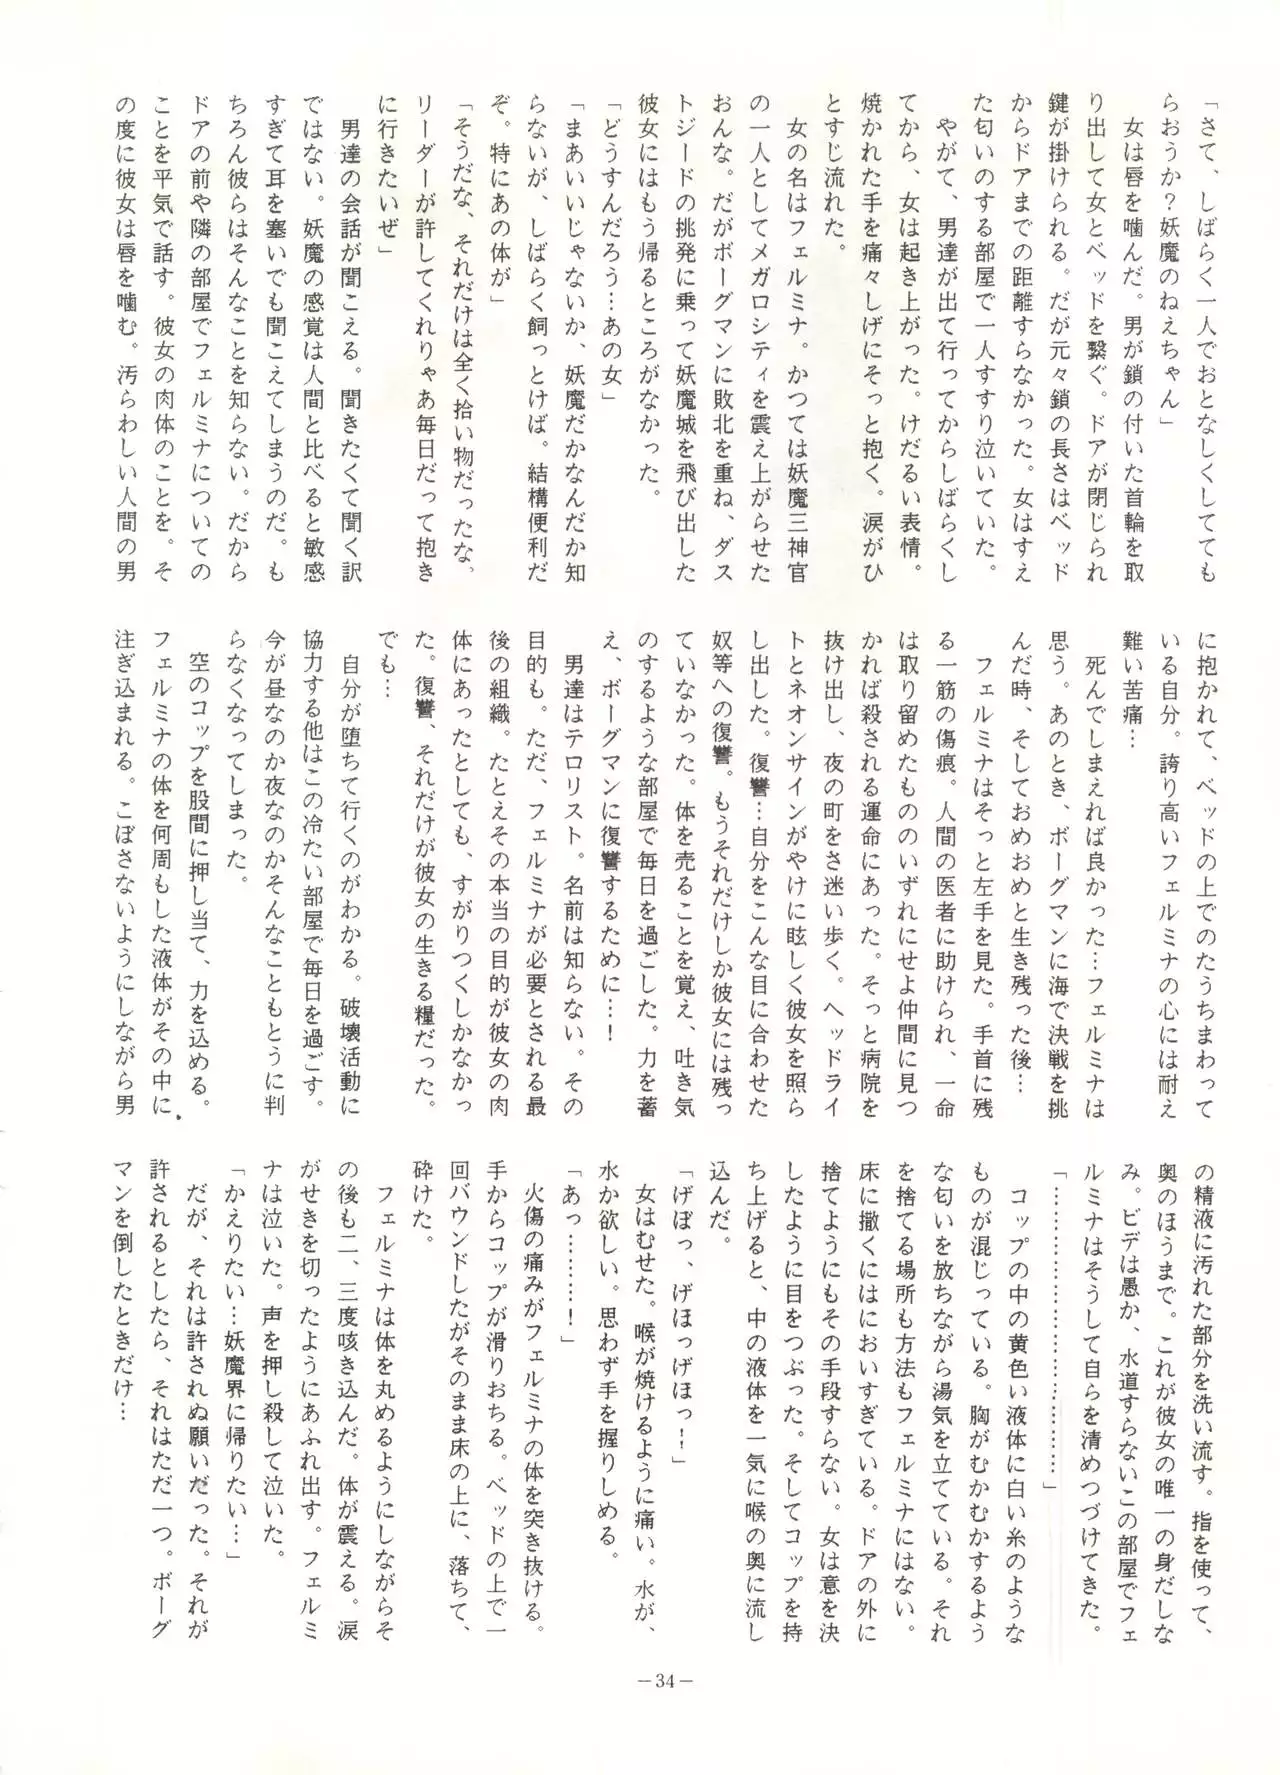 「さて、しばらく一人でおとなしくしても
らおうか？妖魔のねえちゃん」
　女は唇を噛んだ。男が鎖の付いた首輪を取
り出して女とベッドを繋ぐ。ドアが閉じられ
鍵が掛けられる。だが元々鎖の長さはベッド
からドアまでの距離すらなかった。女はすえ
た匂いのする部屋で一人すすり泣いていた。
　やがて、男達が出て行ってからしばらくし
てから、女は起き上がった。けだるい表情。
焼かれた手を痛々しげにそっと抱く。涙がひ
とすじ流れた。
　女の名はフェルミナ。かつては妖魔三神官
の一人としてメガロシティを震え上がらせた
おんな。だがボーグマンに敗北を重ね、ダス
トジードの挑発に乗って妖魔城を飛び出した
彼女にはもう帰るところがなかった。
「どうすんだろう…あの女」
「まあいいじゃないか、妖魔だかなんだか知
らないが、しばらく飼っとけば。結構便利だ
ぞ。特にあの体が」
「そうだな、それだけは全く拾い物だったな。
リーダーが許してくれりゃあ毎日だって抱き
に行きたいぜ」
　男達の会話が聞こえる。聞きたくて聞く訳
ではない。妖魔の感覚は人間と比べると敏感
すぎて耳を塞いでも聞こえてしまうのだ。も
ちろん彼らはそんなことを知らない。だから
ドアの前や隣の部屋でフェルミナについての
ことを平気で話す。彼女の肉体のことを。そ
の度に彼女は唇を噛む。汚らわしい人間の男
に抱かれて、ベッドの上でのたうちまわって
いる自分。誇り高いフェルミナの心には耐え
難い苦痛…
　死んでしまえれば良かった…フェルミナは
思う。あのとき、ボーグマンに海で決戦を挑
んだ時、そしておめおめと生き残った後…
　フェルミナはそっと左手を見た。手首に残
る一筋の傷痕。人間の医者に助けられ、一命
は取り留めたもののいずれにせよ仲間に見つ
かれば殺される運命にあった。そっと病院を
抜け出し、夜の町をさ迷い歩く。ヘッドライ
トとネオンサインがやけに眩しく彼女を照ら
し出した。復讐…自分をこんな目に合わせた
奴等への復讐。もうそれだけしか彼女には残っ
ていなかった。体を売ることを覚え、吐き気
のするような部屋で毎日を過ごした。力を蓄
え、ボーグマンに復讐するために…！
　男達はテロリスト。名前は知らない。その
目的も。ただ、フェルミナが必要とされる最
後の組織。たとえその本当の目的が彼女の肉
体にあったとしても、すがりつくしかなかっ
た。復讐、それだけが彼女の生きる糧だった。
でも…
　自分が堕ちて行くのがわかる。破壊活動に
協力する他はこの冷たい部屋で毎日を過ごす。
今が昼なのか夜なのかそんなこともとうに判
らなくなってしまった。
　空のコップを股間に押し当て、力を込める。
フェルミナの体を何周もした液体がその中に
注ぎ込まれる。こぼさないようにしながら男
の精液に汚れた部分を洗い流す。指を使って、
奥のほうまで。これが彼女の唯一の身だしな
み。ビデは愚か、水道すらないこの部屋でフェ
ルミナはそうして自らを清めつづけてきた。
「……………………………………」
　コップの中の黄色い液体に白い糸のような
ものが混じっている。胸がむかむかするよう
な匂いを放ちながら湯気を立てている。それ
を捨てる場所も方法もフェルミナにはない。
床に撒くにはにおいすぎている。ドアの外に
捨てようにもその手段すらない。女は意を決
したように目をつぶった。そしてコップを持
ち上げると、中の液体を一気に喉の奥に流し
込んだ。
「げぼっ、げほっげほっ！」
　女はむせた。喉が焼けるように痛い。水が、
水か欲しい。思わず手を握りしめる。
「あっ………！」
　火傷の痛みがフェルミナの体を突き抜ける。
手からコップが滑りおちる。ベッドの上で一
回バウンドしたがそのまま床の上に、落ちて、
砕けた。
　フェルミナは体を丸めるようにしながらそ
の後も二、三度咳き込んだ。体が震える。涙
がせきを切ったようにあふれ出す。フェルミ
ナは泣いた。声を押し殺して泣いた。
「かえりたい…妖魔界に帰りたい…」
　だが、それは許されぬ願いだった。それが
許されるとしたら、それはただ一つ。ボーグ
マンを倒したときだけ…
－34－